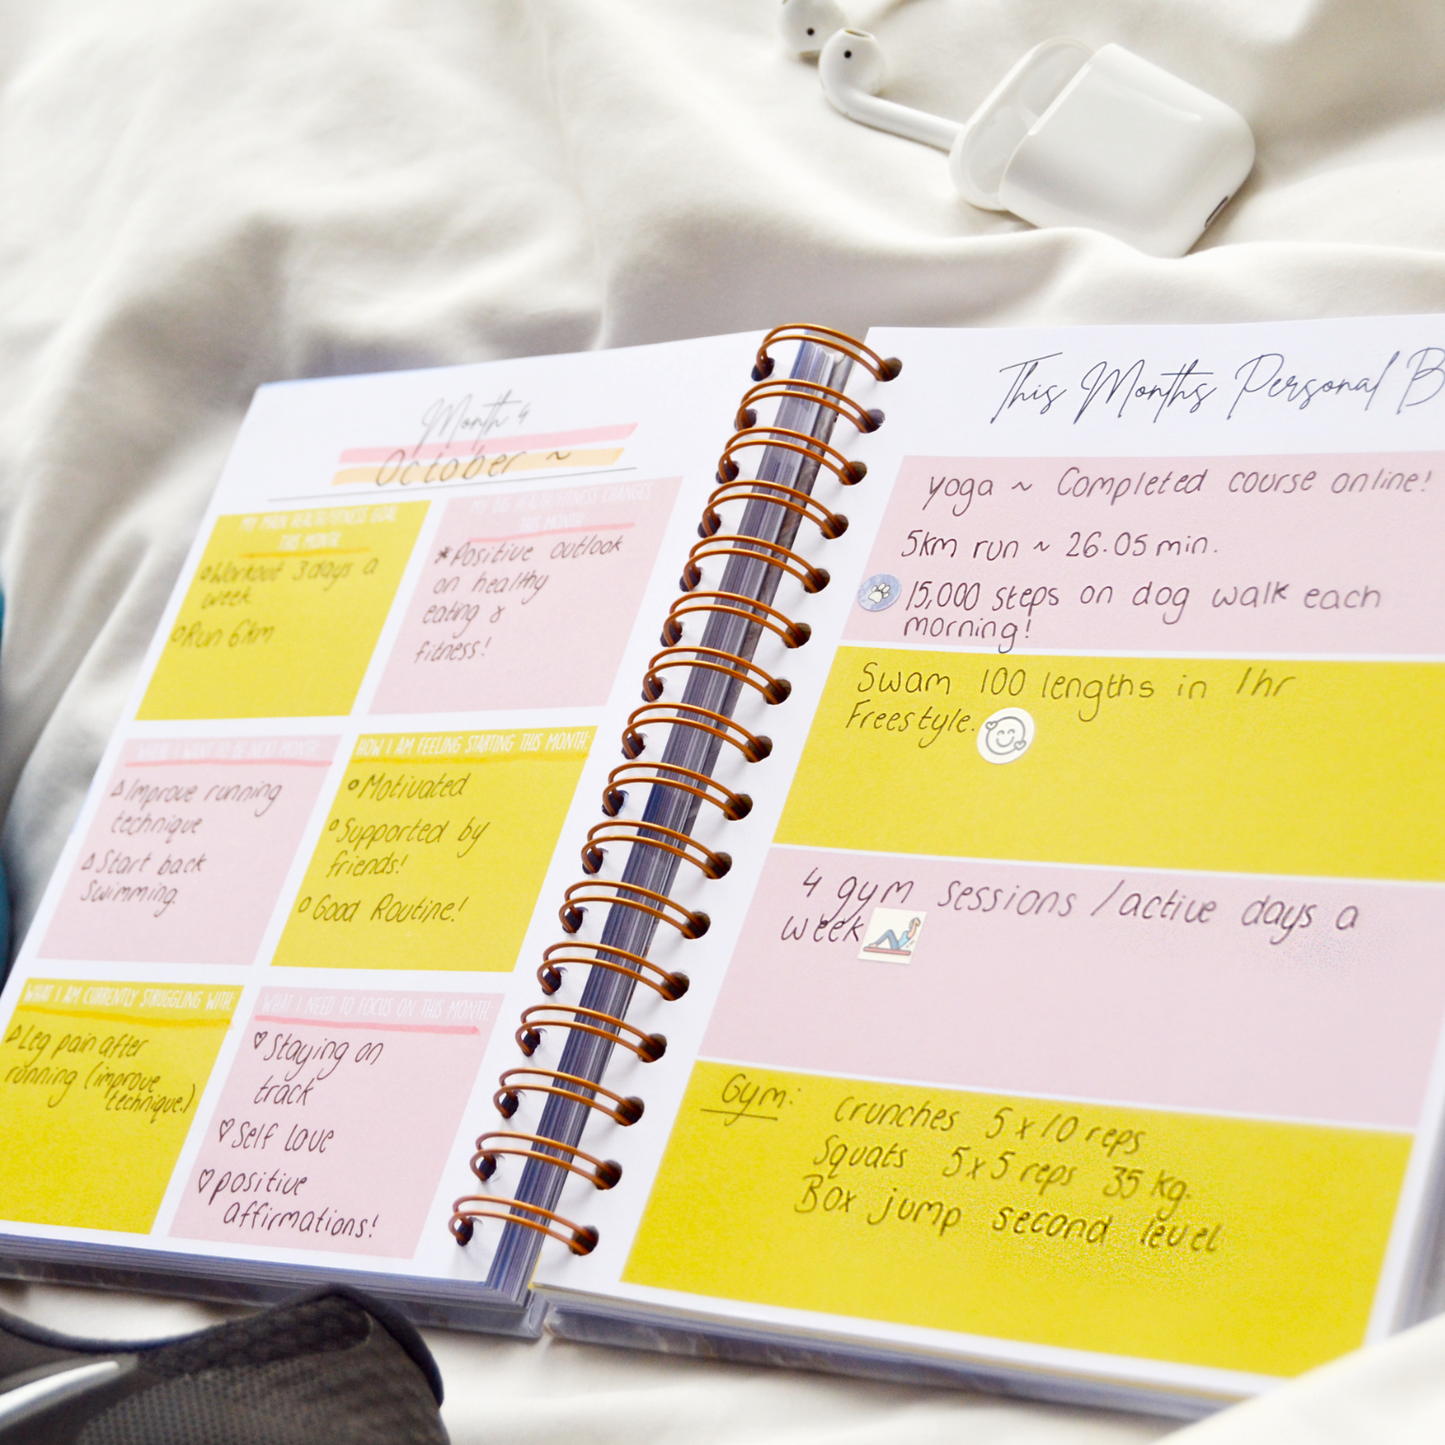 Month 4
October ~
MY MAIN HEALTH/FITNESS GOAL
THIS MONTH:
Workout 3 days a
week
Run 6km
MY BIG HEALTH/FITNESS CHANGES
THIS MONTH:
* Positive outlook
on healthy
eating &
fitness!
WHAT I WANT TO BE NEXT MONTH:
Improve running
technique
Start back
Swimming.
HOW I AM FEELING STARTING THIS MONTH:
Motivated
Supported by
friends!
Good Routine!
WHAT I AM CURRENTLY STRUGGLING WITH:
Leg pain after
running (improve
technique.)
WHAT I NEED TO FOCUS ON THIS MONTH:
♡ Staying on
track
♡ Self love
♡ positive
affirmations!
This Months Personal B
yoga ~ Completed course online!
5km run ~ 26.05 min.
15,000 steps on dog walk each
morning!
Swam 100 lengths in 1hr
Freestyle.
4 gym sessions / active days a
week
Gym: Crunches 5 x 10 reps
Squats 5 x 5 reps 35 kg.
Box jump second level